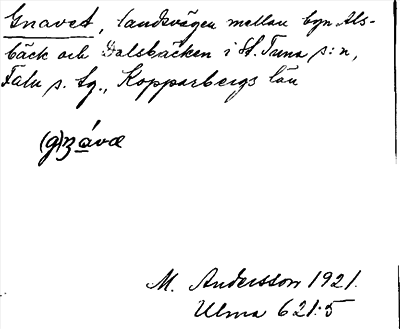 Gnavet, landsvägen mellan byn Als-
bäck och Dalsbäcken i St. Tuna s:n,
Falu s. tg., Kopparbergs län
(g)návæ
M. Andersson 1921.
Ulma 621:5